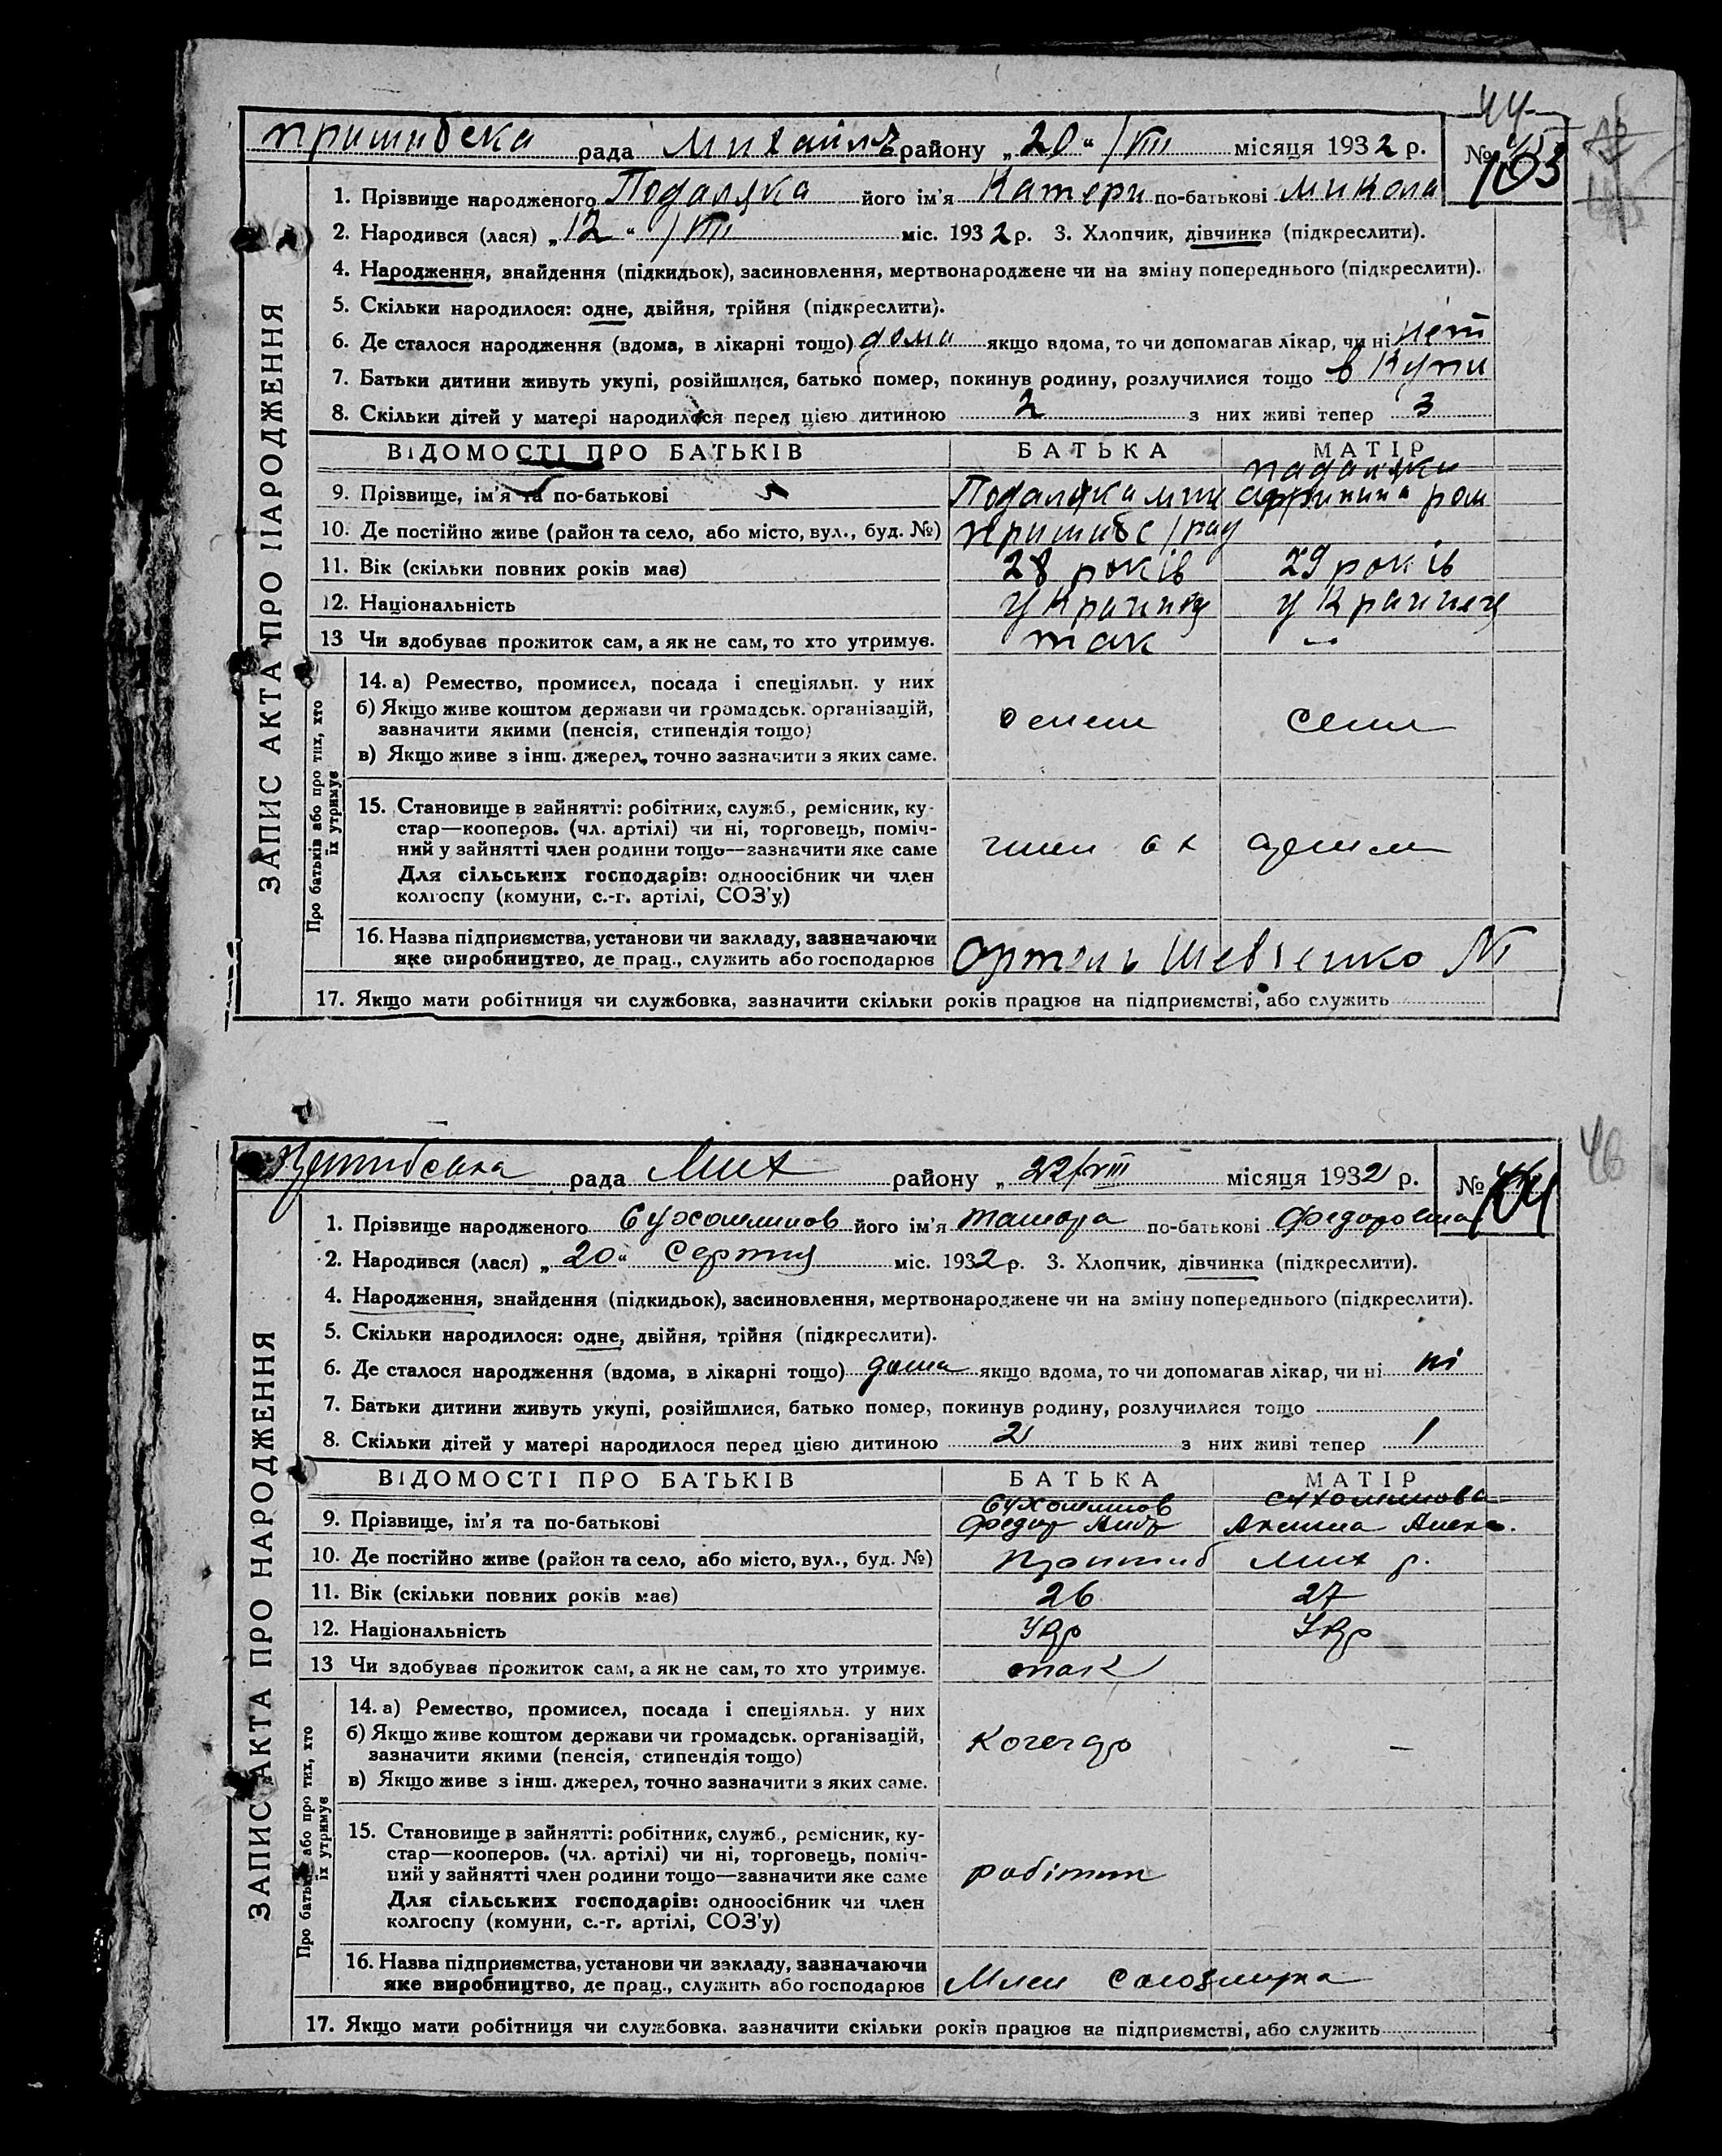 44
Пришибска рада Михайлъ району „20" /VIII місяця 1932 р. № 103
1. Прізвище народженого Подаляка його ім'я Катери по-батькові Микола
2. Народився (лася) „12" /VIII міс. 1932 р. 3. Хлопчик, дівчинка (підкреслити).
4. Народження, знайдення (підкидьок), засиновлення, мертвонароджене чи на зміну попереднього (підкреслити).
5. Скільки народилося: одне, двійня, трійня (підкреслити).
6. Де сталося народження (вдома, в лікарні тощо) дома якщо вдома, то чи допомагав лікар, чи ні нет
7. Батьки дитини живуть укупі, розійшлися, батько помер, покинув родину, розлучилися тощо в Купи
8. Скільки дітей у матері народилося перед цією дитиною 2 з них живі тепер 3
ЗАПИС АКТА ПРО НАРОДЖЕННЯ
ВІДОМОСТІ ПРО БАТЬКІВ БАТЬКА МАТІР
9. Прізвище, ім'я та по-батькові Подаляка ром
10. Де постійно живе (район та село, або місто, вул., буд. №) Пришибс / рау
11. Вік (скільки повних років має) 28 років 29 років
12. Національність
13 Чи здобуває прожиток сам, а як не сам, то хто утримує. так –
Про батьків або про тих, хто їх утримує
14. а) Ремество, промисел, посада і спеціяльн. у них
б) Якщо живе коштом держави чи громадськ. організацій,
зазначити якими (пенсія, стипендія тощо)
в) Якщо живе з інш. джерел, точно зазначити з яких саме.
15. Становище в зайнятті: робітник, служб., ремісник, ку-
стар—кооперов. (чл. артілі) чи ні, торговець, поміч-
ний у зайнятті член родини тощо—зазначити яке саме
Для сільських господарів: одноосібник чи член
колгоспу (комуни, с.-г. артілі, СОЗ'у)
16. Назва підприємства, установи чи закладу, зазначаючи
яке виробництво, де прац., служить або господарює Ортель Шевченко №1
17. Якщо мати робітниця чи службовка, зазначити скільки років працює на підприємстві, або служить
46
рада Мих району „22/VIII місяця 1932 р. № 104
1. Прізвище народженого Сухомлинов його ім'я Тамара по-батькові Федоровна
2. Народився (лася) „20" Серпня міс. 1932 р. 3. Хлопчик, дівчинка (підкреслити).
4. Народження, знайдення (підкидьок), засиновлення, мертвонароджене чи на зміну попереднього (підкреслити).
5. Скільки народилося: одне, двійня, трійня (підкреслити).
6. Де сталося народження (вдома, в лікарні тощо) дома якщо вдома, то чи допомагав лікар, чи ні ні
7. Батьки дитини живуть укупі, розійшлися, батько помер, покинув родину, розлучилися тощо
8. Скільки дітей у матері народилося перед цією дитиною 2 з них живі тепер 1
ЗАПИС АКТА ПРО НАРОДЖЕННЯ
ВІДОМОСТІ ПРО БАТЬКІВ БАТЬКА МАТІР
Сухомлинов Сухомлинова
9. Прізвище, ім'я та по-батькові Федор
10. Де постійно живе (район та село, або місто, вул., буд. №) Мих р.
11. Вік (скільки повних років має) 26 27
12. Національність Укр Укр
13 Чи здобуває прожиток сам, а як не сам, то хто утримує. так
Про батьків або про тих, хто їх утримує
14. а) Ремество, промисел, посада і спеціяльн. у них
б) Якщо живе коштом держави чи громадськ. організацій,
зазначити якими (пенсія, стипендія тощо) Кочегар –
в) Якщо живе з інш. джерел, точно зазначити з яких саме.
15. Становище в зайнятті: робітник, служб., ремісник, ку-
стар—кооперов. (чл. артілі) чи ні, торговець, поміч-
ний у зайнятті член родини тощо—зазначити яке саме робітник
Для сільських господарів: одноосібник чи член
колгоспу (комуни, с.-г. артілі, СОЗ'у)
16. Назва підприємства, установи чи закладу, зазначаючи
яке виробництво, де прац., служить або господарює Млин Союзмука
17. Якщо мати робітниця чи службовка, зазначити скільки років працює на підприємстві, або служить